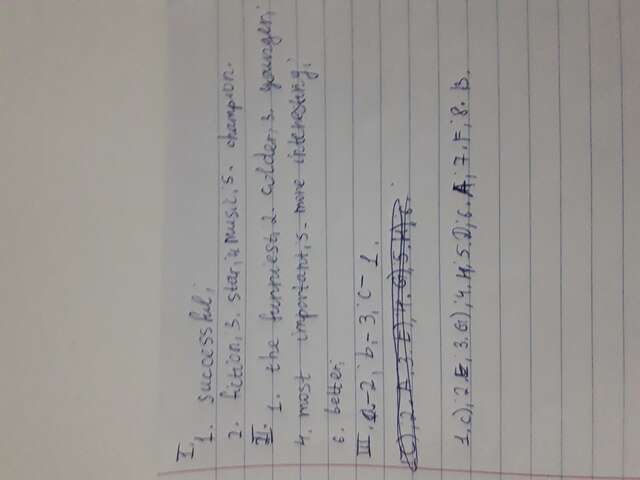 I.
1. successful;
2. fiction; 3. star; 4 music; 5. champion.
II. 1. the funniest; 2. colder; 3. younger;
4. most important; 5. more interesting;
6. better.
III. a-2; b-3; c-1.
1. c); 2. E; 3. G); 4. H; 5. D; 6. A; 7. F; 8. B.